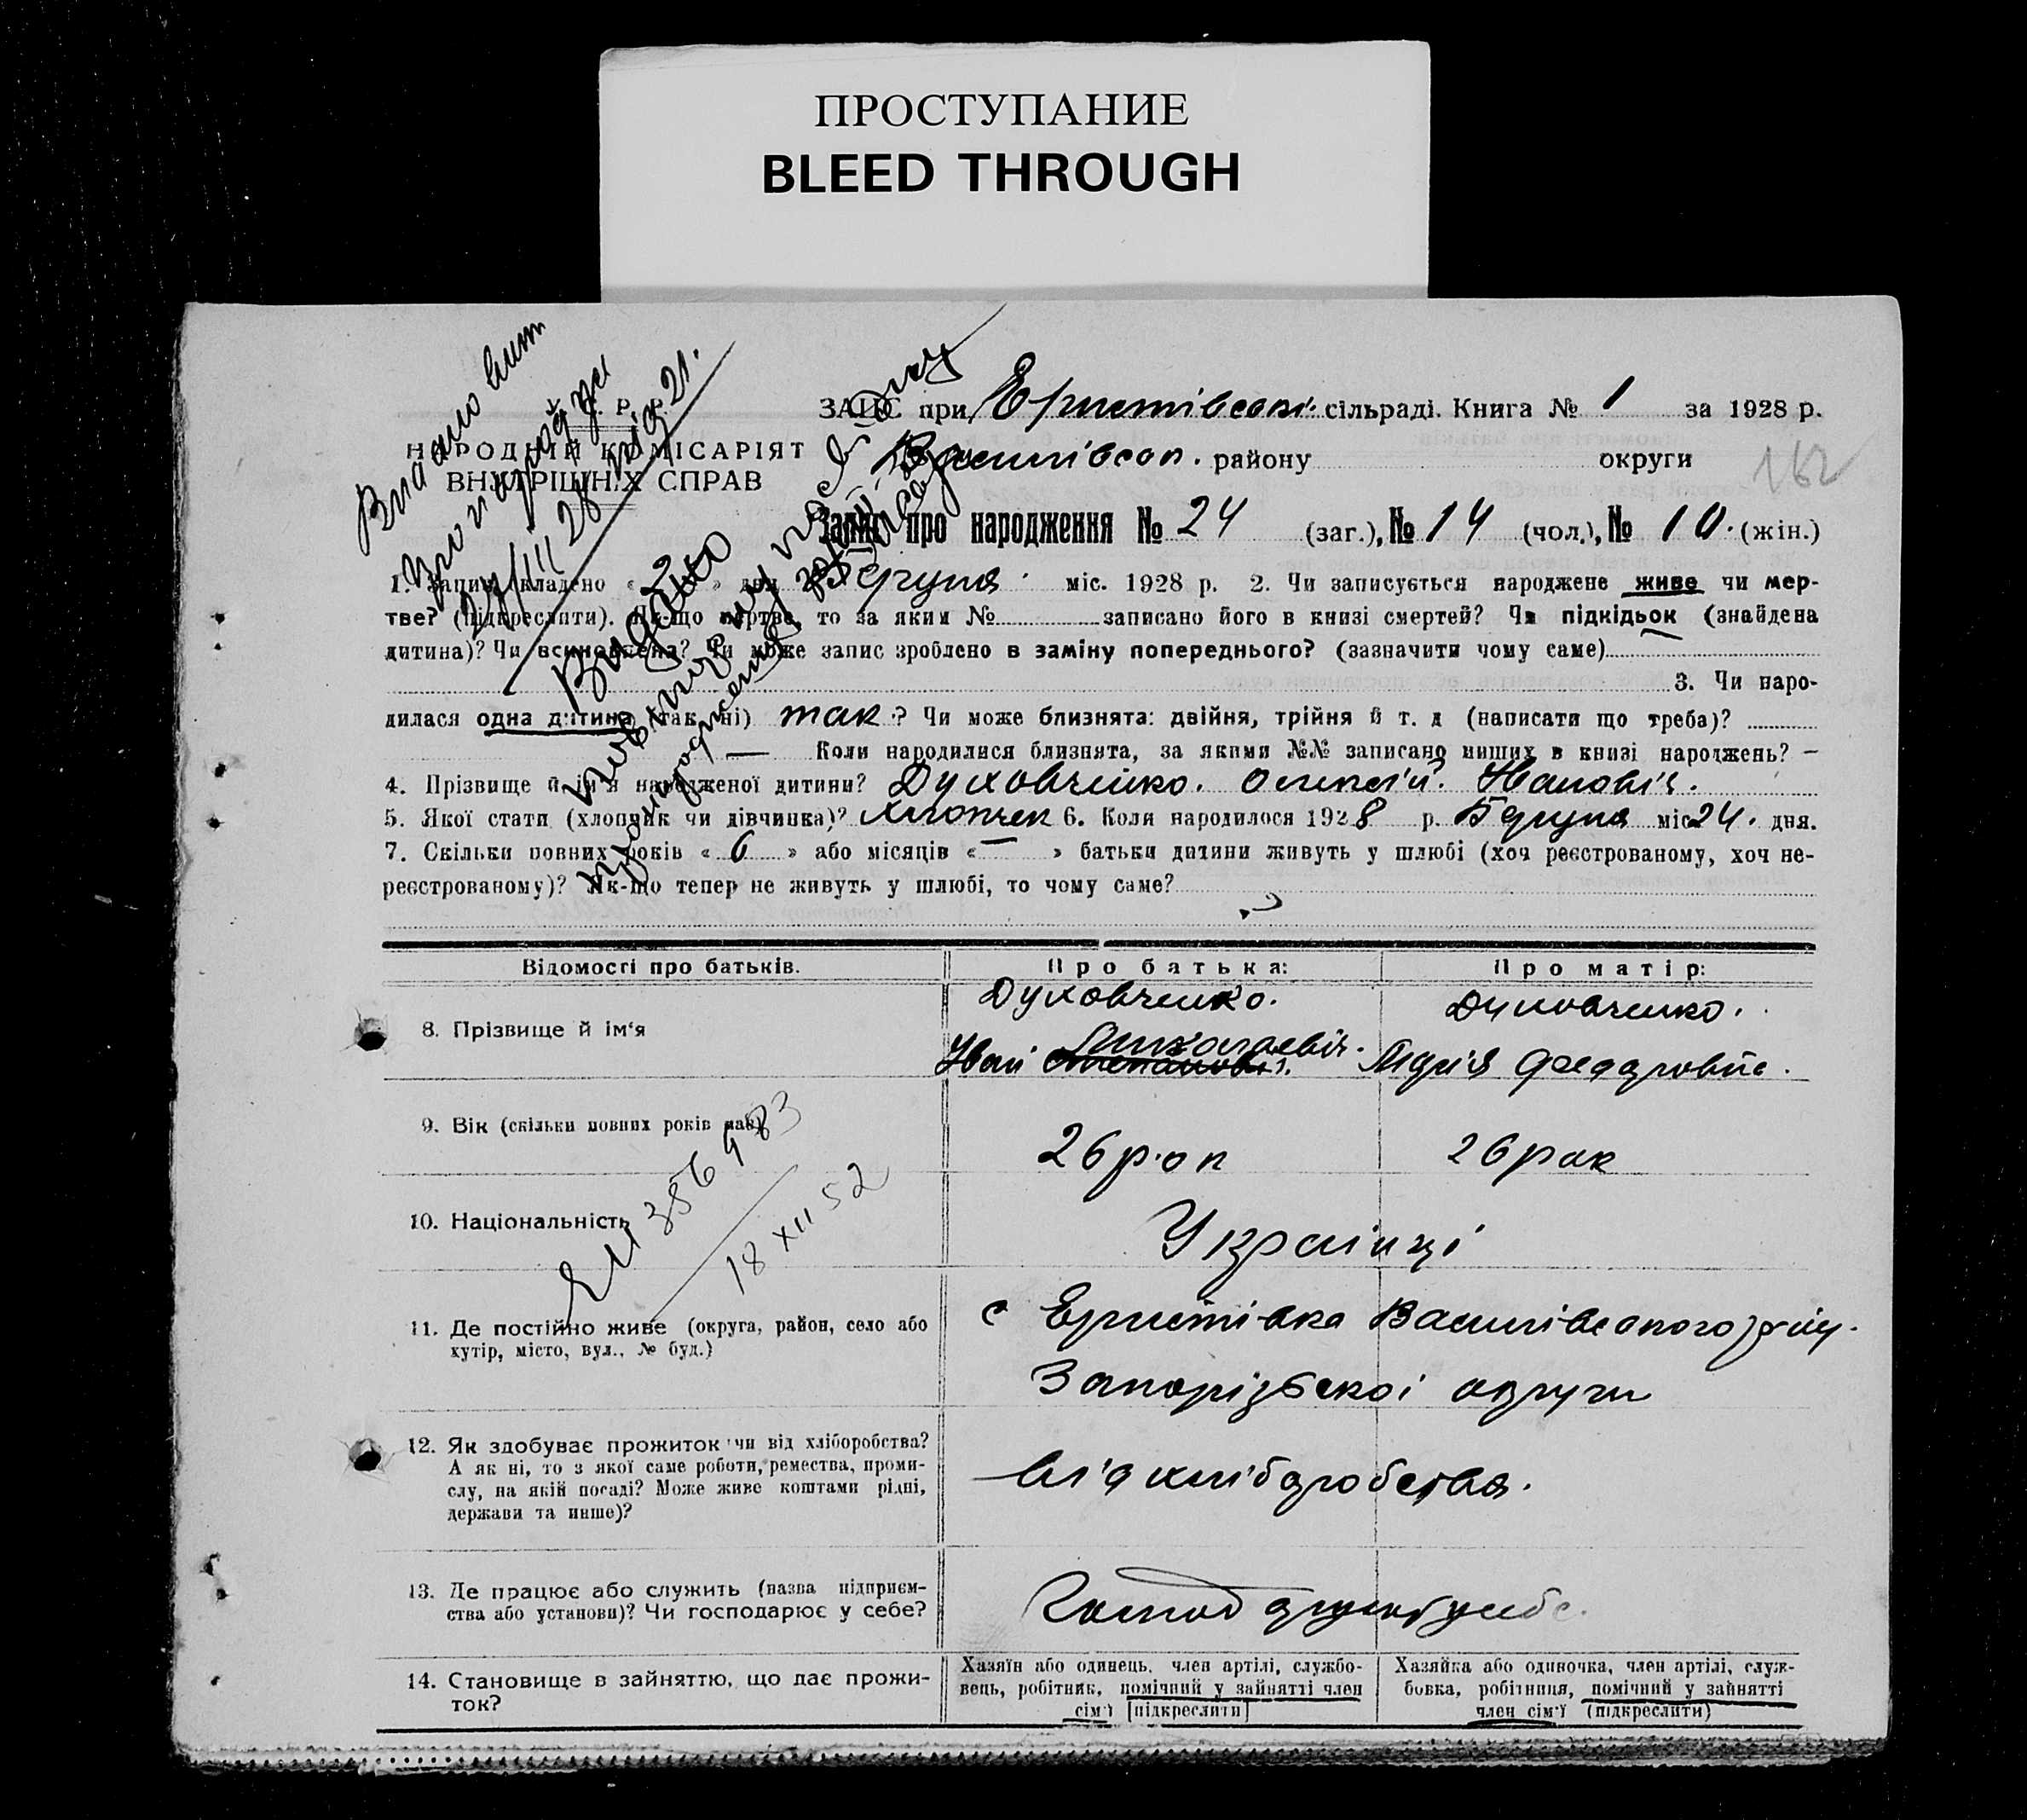 ПРОСТУПАНИЕ
BLEED THROUGH
НАРОДНІЙ КОМІСАРІЯТ
ВНУТРІШНІХ СПРАВ
ЗАПИС при Еристівській сільраді. Книга № 1 за 1928 р.
Василівськ. району округи
162
Запис про народження № 24 (заг.), № 14 (чол.), № 10. (жін.)
1. Запис складено « 2 » дня Березня міс. 1928 р. 2. Чи записується народжене живе чи мер-
тве? (підкреслити). Як-що мертве, то за яким № записано його в книзі смертей? Чи підкідьок (знайдена
дитина)? Чи всиновлена? Чи може запис зроблено в заміну попереднього? (зазначити чому саме)
3. Чи наро-
дилася одна дитина (так, ні) так? Чи може близнята: двійня, трійня й т. д (написати що треба)?
— Коли народилися близнята, за якими №№ записано инших в книзі народжень? —
4. Прізвище й ім'я народженої дитини? Духовченко. Олексій. Иванович.
5. Якої стати (хлопчик чи дівчинка)? хлопчек 6. Коли народилося 1928 р. міс 24. дня.
7. Скільки повних років « 6 » або місяців « — » батьки дитини живуть у шлюбі (хоч реєстрованому, хоч не-
реєстрованому)? Як-що тепер не живуть у шлюбі, то чому саме?
Відомості про батьків.
Про батька:
Про матір:
8. Прізвище й ім'я
Духовченко.
Иван Миколаевич.
Духовченко.
Лідія Феодровна.
9. Вік (скільки повних років має)
26 рок
26 рок
10. Національність
Українці
11. Де постійно живе (округа, район, село або
хутір, місто, вул., № буд.)
с Еристівка Василівського рай.
Запорізької округи
12. Як здобуває прожиток чи від хліборобства?
А як ні, то з якої саме роботи, ремества, проми-
слу, на якій посаді? Може живе коштами рідні,
держави та инше)?
від хліборобства.
13. Де працює або служить (назва підприєм-
ства або установи)? Чи господарює у себе?
14. Становище в зайняттю, що дає прожи-
ток?
Хазяїн або одинець, член артілі, службо-
вець, робітник, помічний у зайнятті член
сім'ї [підкреслити]
Хазяйка або одиночка, член артілі, служ-
бовка, робітниця, помічний у зайнятті
член сім'ї (підкреслити)
18 XII 52